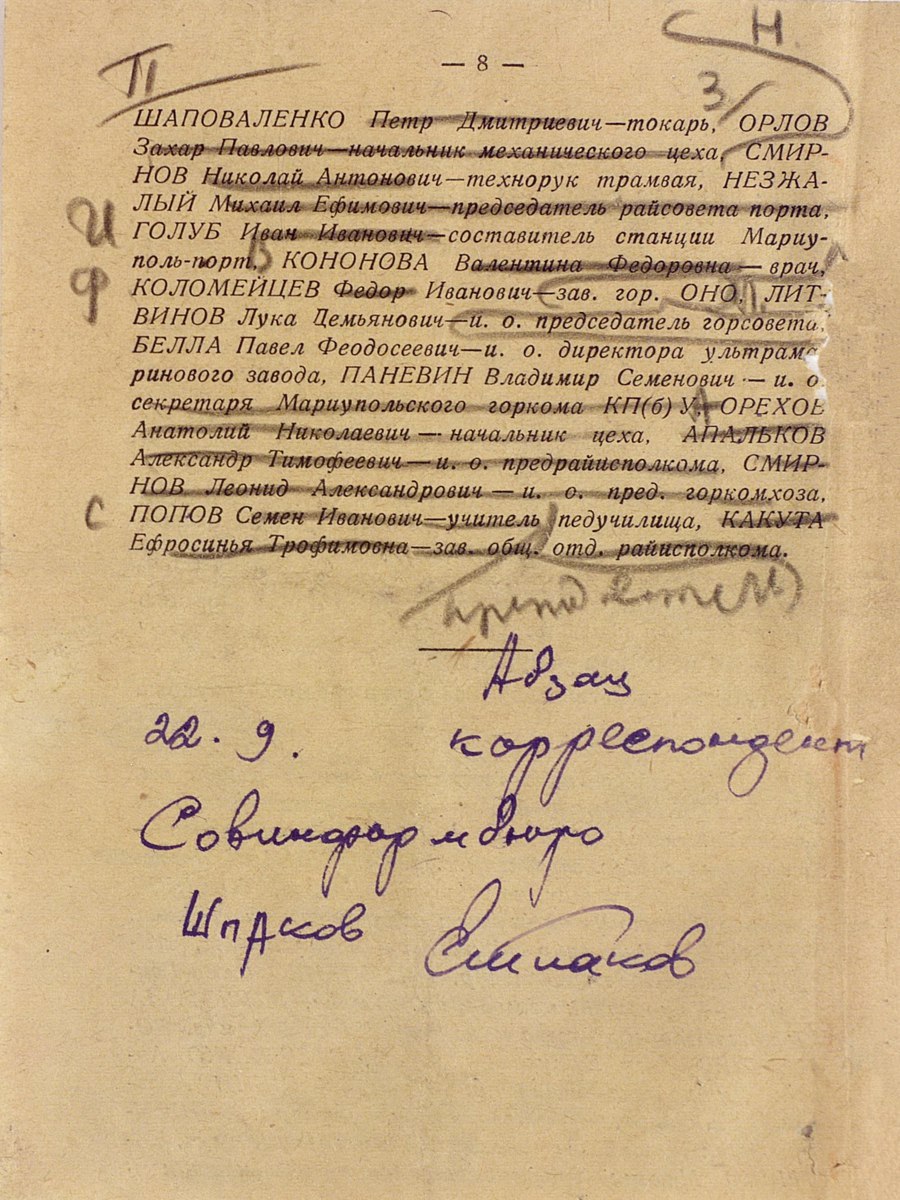 Н.
П
— 8 —
З
ШАПОВАЛЕНКО Петр Дмитриевич—токарь, ОРЛОВ
Захар Павлович—начальник механического цеха, СМИР-
НОВ Николай Антонович—технорук трамвая, НЕЗЖА-
ЛЫЙ Михаил Ефимович—председатель райсовета порта,
И
ГОЛУБ Иван Иванович—составитель станции Мариу-
поль-порт, КОНОНОВА Валентина Федоровна — врач,
В
Ф
КОЛОМЕЙЦЕВ Федор Иванович—зав. гор. ОНО, ЛИТ-
ВИНОВ Лука Демьянович—и. о. председатель горсовета,
БЕЛЛА Павел Феодосеевич—и. о. директора ультрама
ринового завода, ПАНЕВИН Владимир Семенович — и. о.
секретаря Мариупольского горкома КП(б)У, ОРЕХОВ
А
Анатолий Николаевич — начальник цеха, АПАЛЬКОВ
Александр Тимофеевич—и. о. предрайисполкома, СМИР-
НОВ Леонид Александрович — и. о. пред. горкомхоза,
С
ПОПОВ Семен Иванович—учитель педучилища, КАКУТА
Ефросинья Трофимовна—зав. общ. отд. райисполкома.
Абзац
22. 9. корреспондент
Совинформбюро
Шпаков